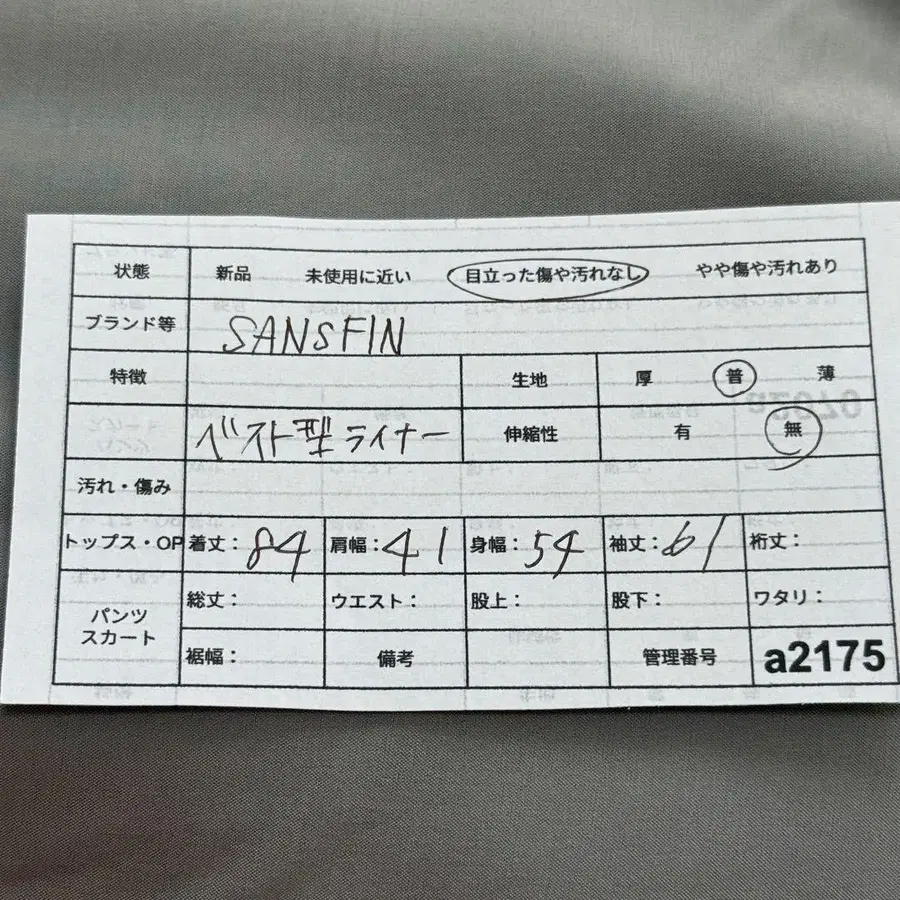 状態 新品 未使用に近い 目立った傷や汚れなし やや傷や汚れあり
ブランド等 SANSFIN
特徴 生地 厚 普 薄
ベスト型ライナー 伸縮性 有 無
汚れ・傷み
トップス・OP 着丈：84 肩幅：41 身幅：54 袖丈：61 裄丈：
パンツ スカート 総丈： ウエスト： 股上： 股下： ワタリ：
裾幅： 備考 管理番号 a2175